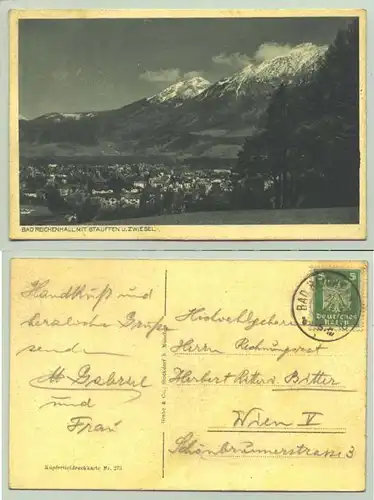 BAD REICHENHALL MIT STAUFFEN U. ZWIESEL.
Handkuß und
herzliche Grüße
senden
M Gabriel
und
Frau
Kupfertiefdruckkarte Nr. 273
BAD
5
Deutsches
Reich
Hochwohlgeboren
Herrn Rechnungsrat
Herbert Ritter v. Bitter
Wien V
Schönbrunnerstrasse 3